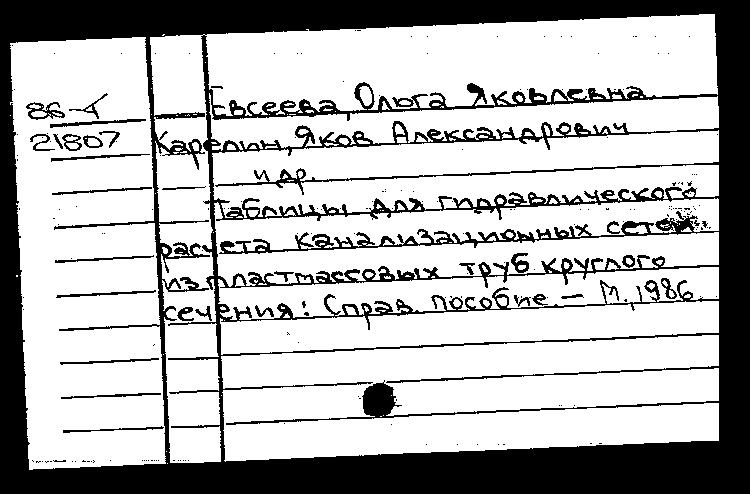 86-Т Евсеева, Ольга Яковлевна.
21807 Карелин, Яков Александрович
и др.
Таблицы для гидравлического
расчета канализационных сетей
из пластмассовых труб круглого
сечения: Справ. пособие — М., 1986.